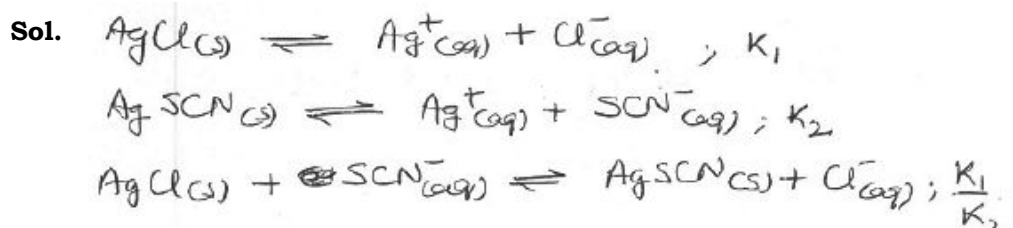 Sol. AgCl(s) ⇌ Ag⁺(aq) + Cl⁻(aq) ; K₁
AgSCN(s) ⇌ Ag⁺(aq) + SCN⁻(aq) ; K₂
AgCl(s) + SCN⁻(aq) ⇌ AgSCN(s) + Cl⁻(aq) ; K₁/K₂